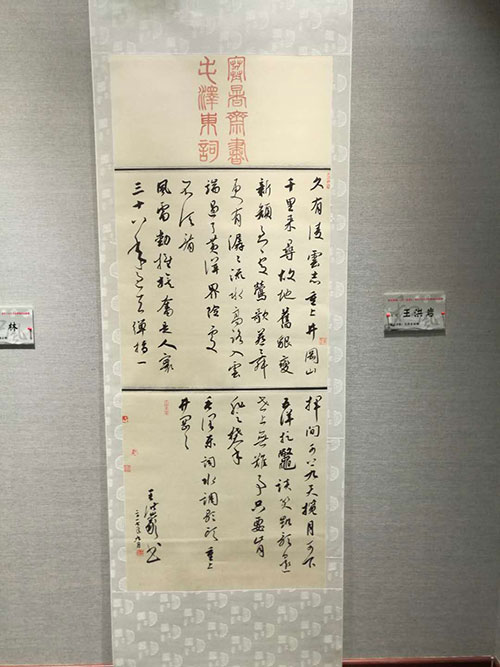 寒暑齋書
毛澤東詞
久有凌雲志重上井岡山
千里來尋故地舊貌變
新顏到處鶯歌燕舞
更有潺潺流水高路入雲
端過了黃洋界險處
不須看
風雷動旌旗奮是人寰
三十八年過去彈指一
揮間可上九天攬月可下
五洋捉鱉談笑凱歌還
世上無難事只要肯
登攀
毛澤東詞水調歌頭重上
井岡山
王洪岩書
林
王洪岩